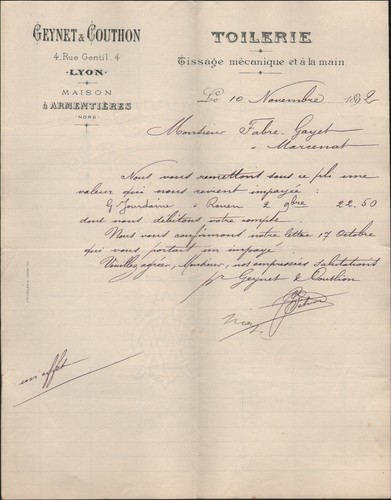 GEYNET & COUTHON
4, Rue Gentil, 4
LYON
MAISON
à ARMENTIÈRES
NORD
TOILERIE
Tissage mécanique et à la main
Le 10 Novembre 1892
Monsieur Fabre-Gayet
à Marcenat
Nous vous remettons sous ce pli une
valeur qui nous revient impayée :
G Jourdaine à Rouen 2 9bre 22,50
dont nous débitons votre compte.
Nous vous confirmons notre lettre 17 Octobre
qui vous portait un impayé.
Veuillez agréer, Monsieur, nos empressées salutations
pr Geynet & Couthon
un effet